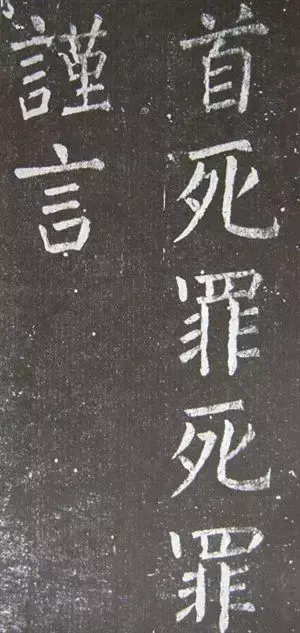 首死罪死罪
謹言